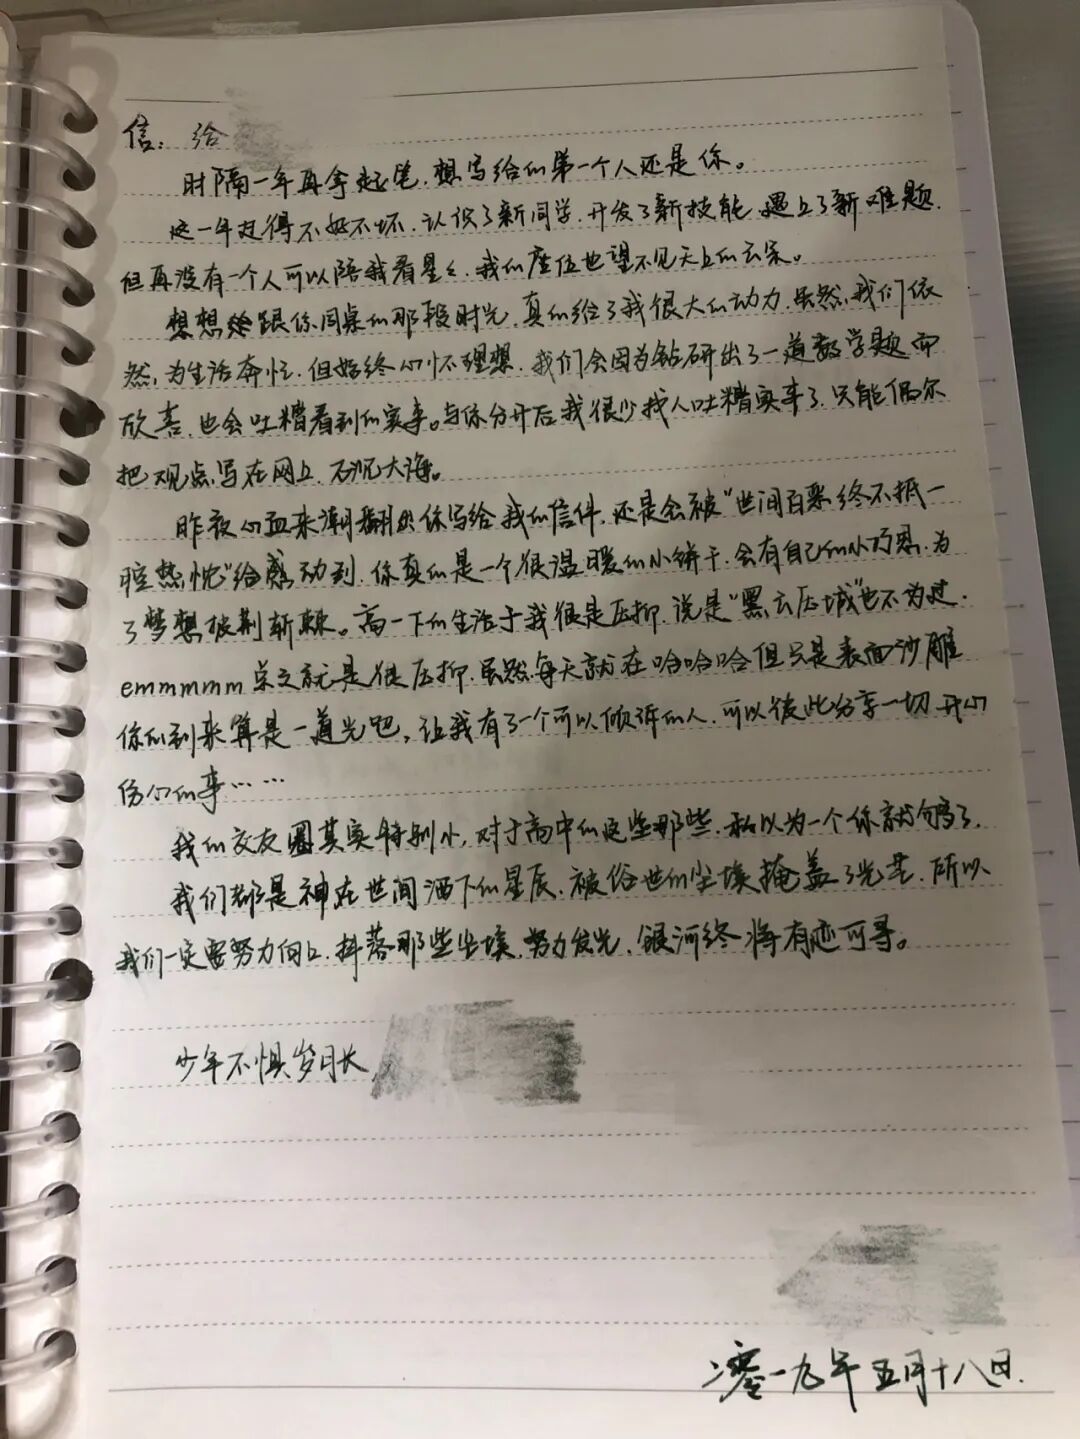 信：给
时隔一年再拿起笔，想写给的第一个人还是你。
这一年过得不好不坏，认识了新同学，开发了新技能，遇上了新难题，
但再没有一个人可以陪我看星星，我的座位也望不见天上的云朵。
想想跟你同桌的那段时光，真的给了我很大的动力，虽然，我们依
然，为生活奔忙，但始终心怀理想，我们会因为钻研出了一道数学题而
欣喜，也会吐槽看到的实事。与你分开后我很少找人吐槽实事了，只能偶尔
把观点写在网上，石沉大海。
昨夜心血来潮翻出你写给我的信件，还是会被“世间百累终不抵一
腔热忱”给感动到，你真的是一个很温暖的小饼干，会有自己的小巧思，为
了梦想披荆斩棘。高一下的生活于我很是压抑，说是“黑云压城”也不为过，
emmmmm总之就是很压抑，虽然每天就在哈哈哈哈但只是表面沙雕
你的到来算是一道光吧，让我有了一个可以倾诉的人，可以彼此分享一切开心
伤心的事……
我的交友圈其实特别小，对于高中的这些那些，私以为一个你就够了，
我们都是神在世间洒下的星辰，被俗世的尘埃掩盖了光芒，所以
我们一定要努力向上，抖落那些尘埃，努力发光，银河终将有迹可寻。
少年不惧岁月长，
二零一九年五月十八日.